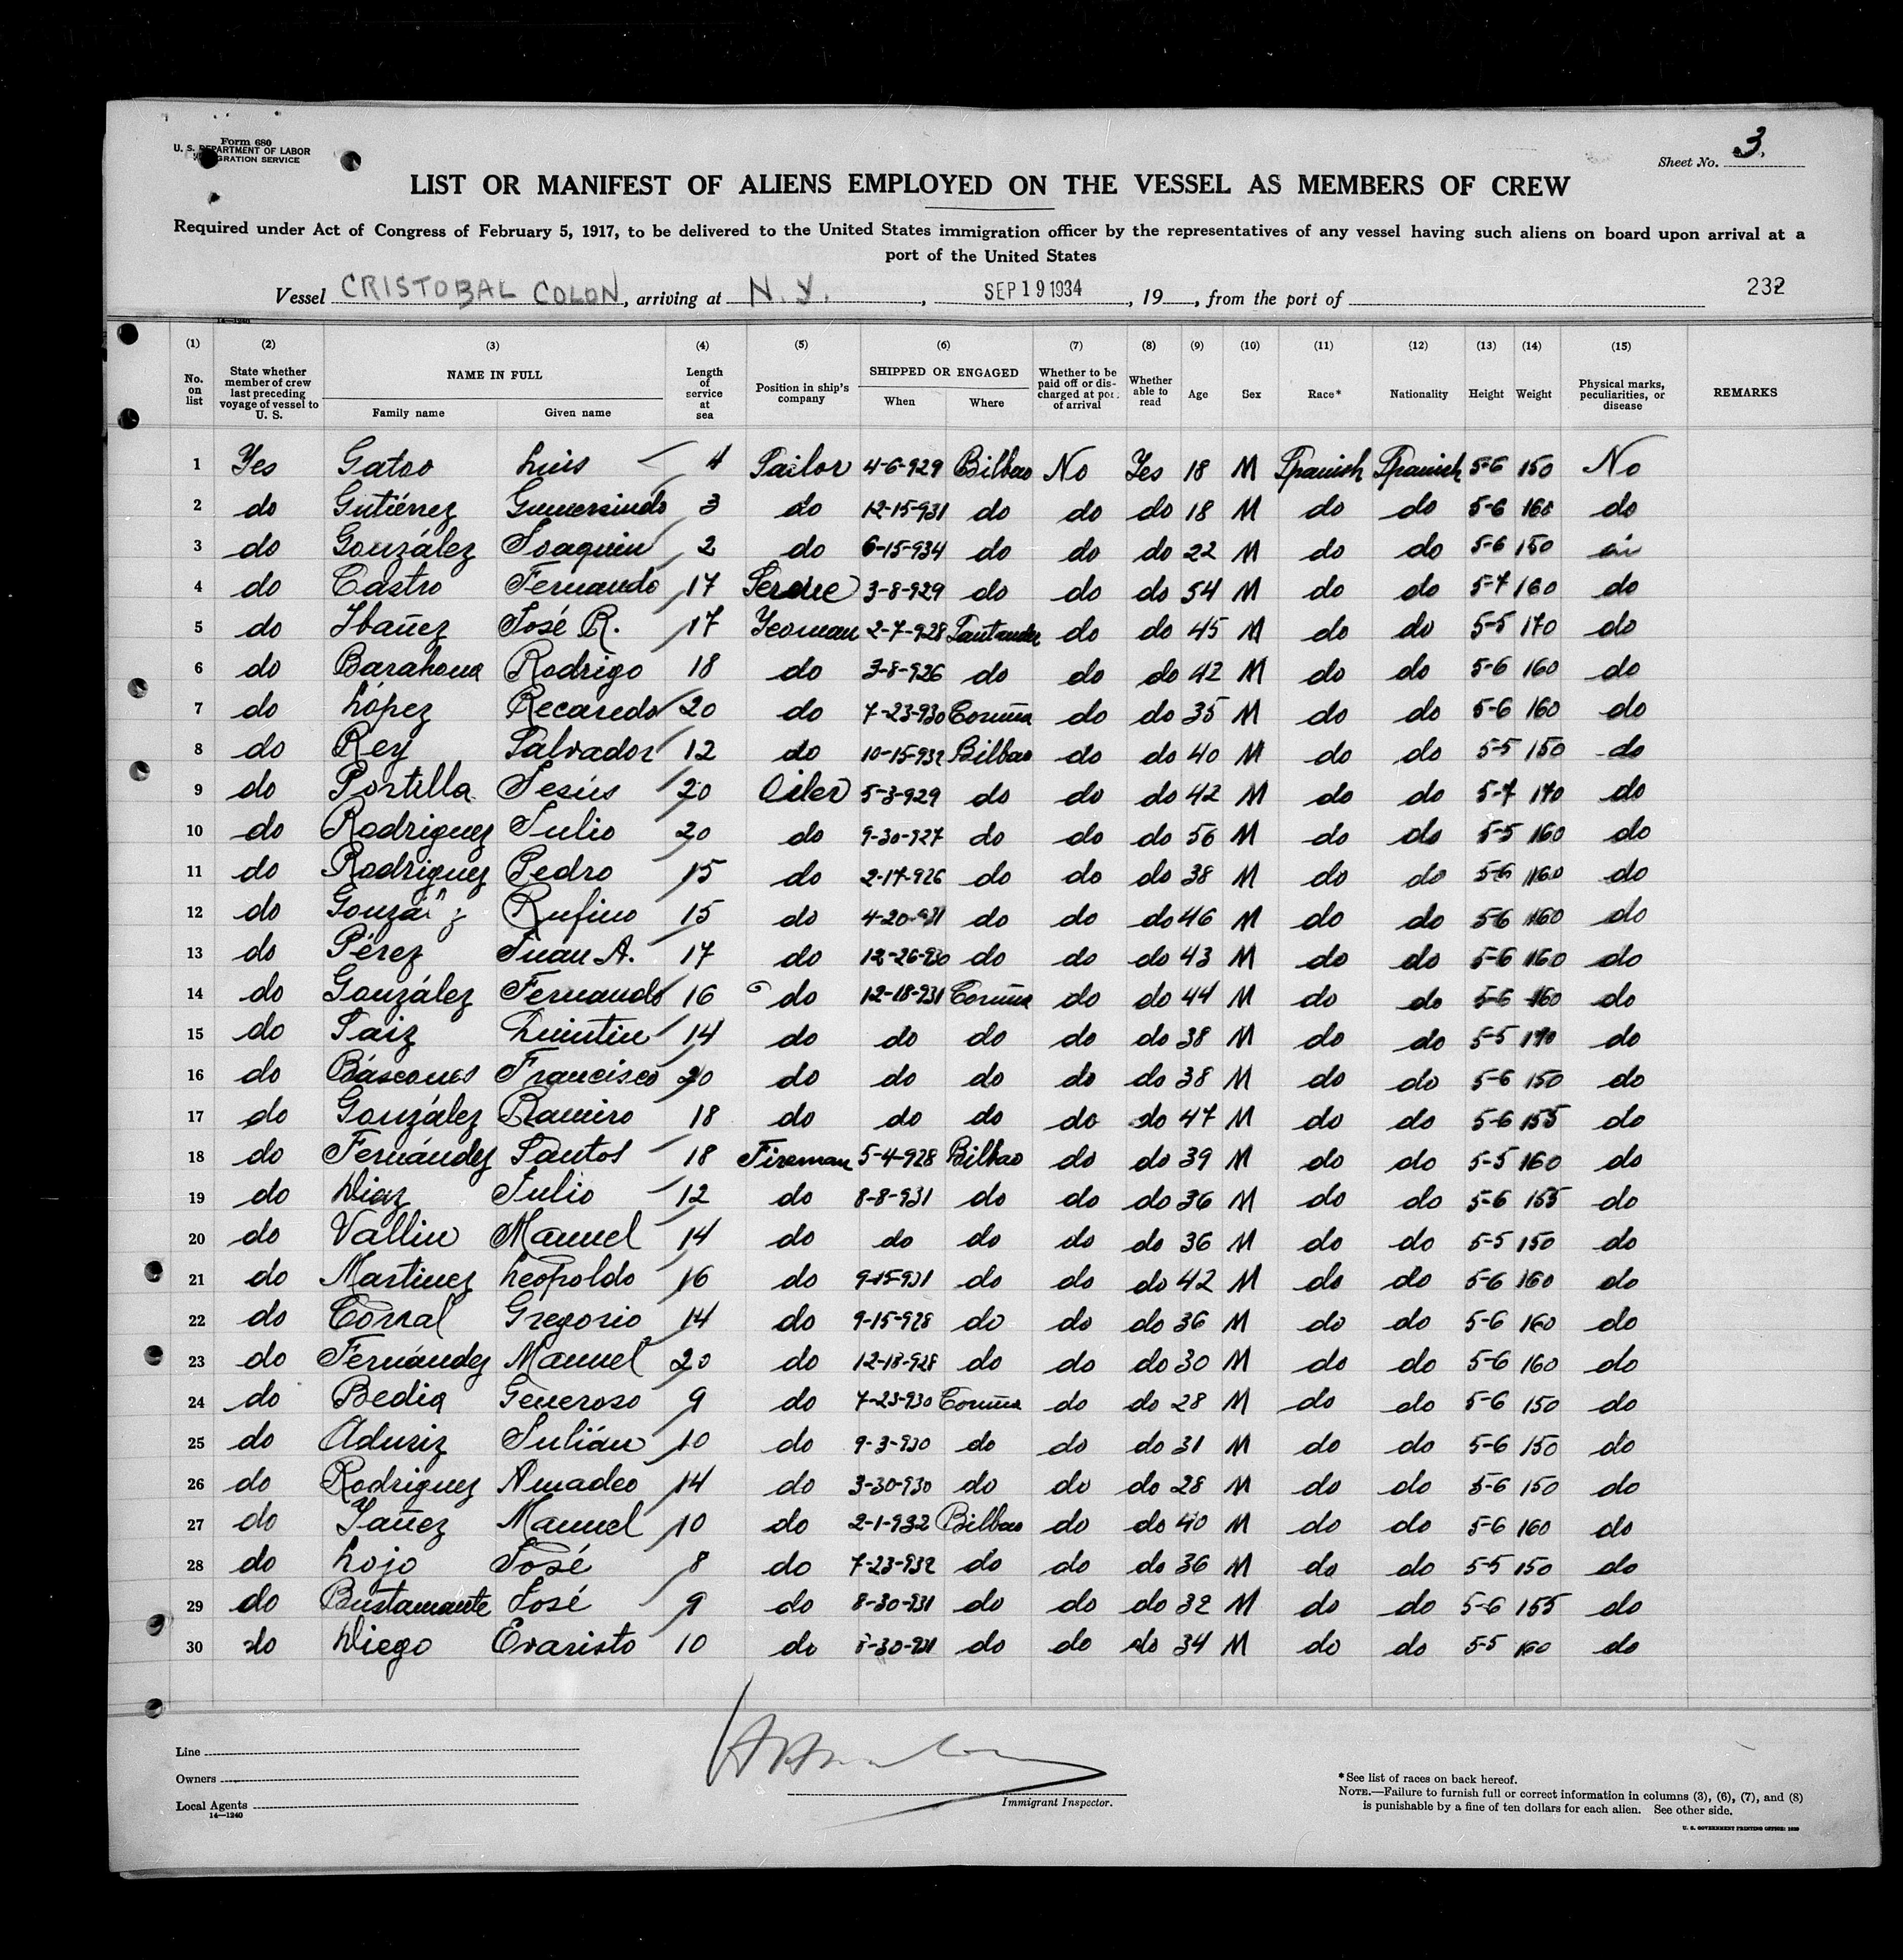 Form 680
U. S. DEPARTMENT OF LABOR
IMMIGRATION SERVICE
Sheet No. 3.
LIST OR MANIFEST OF ALIENS EMPLOYED ON THE VESSEL AS MEMBERS OF CREW
Required under Act of Congress of February 5, 1917, to be delivered to the United States immigration officer by the representatives of any vessel having such aliens on board upon arrival at a
port of the United States
Vessel CRISTOBAL COLON, arriving at N. Y., SEP 19 1934, 19, from the port of
232
14—1240
(1) (2) (3) (4) (5) (6) (7) (8) (9) (10) (11) (12) (13) (14) (15)
No. on list State whether member of crew last preceding voyage of vessel to U. S. NAME IN FULL Family name Given name Length of service at sea Position in ship's company SHIPPED OR ENGAGED When Where Whether to be paid off or discharged at port of arrival Whether able to read Age Sex Race* Nationality Height Weight Physical marks, peculiarities, or disease REMARKS
1 Yes Gatoo Luis 4 Sailor 4-6-929 Bilbao No Yes 18 M Spanish Spanish 5-6 150 No
2 do Gutiérrez Gumersindo 3 do 12-15-931 do do do 18 M do do 5-6 160 do
3 do González Joaquin 2 do 6-15-934 do do do 22 M do do 5-6 150
4 do Castro Fernando 17 3-8-929 do do do 54 M do do 5-7 160 do
5 do Ibañez José R. 17 Yeoman 2-7-928 Santander do do 45 M do do 5-5 170 do
6 do Barahona Rodrigo 18 do 3-8-926 do do do 42 M do do 5-6 160 do
7 do López Recaredo 20 do 7-23-930 Coruña do do 35 M do do 5-6 160 do
8 do Rey Salvador 12 do 10-15-932 Bilbao do do 40 M do do 5-5 150 do
9 do Portilla Jesús 20 Oiler 5-3-929 do do do 42 M do do 5-7 170 do
10 do Rodriguez Julio 20 do 9-30-927 do do do 56 M do do 5-5 160 do
11 do Rodriguez Pedro 15 do 2-17-926 do do do 38 M do do 5-6 160 do
12 do González Rufino 15 do 4-20-931 do do do 46 M do do 5-6 160 do
13 do Pérez Juan A. 17 do 12-26-930 do do do 43 M do do 5-6 160 do
14 do González Fernando 16 do 12-18-931 Coruña do do 44 M do do 5-6 160 do
15 do Saiz Quintin 14 do do do do do 38 M do do 5-5 170 do
16 do Báscones Francisco 20 do do do do do 38 M do do 5-6 150 do
17 do González Ramiro 18 do do do do do 47 M do do 5-6 155 do
18 do Fernández Santos 18 Fireman 5-4-928 Bilbao do do 39 M do do 5-5 160 do
19 do Diaz Julio 12 do 8-8-931 do do do 36 M do do 5-6 155 do
20 do Vallin Manuel 14 do do do do do 36 M do do 5-5 150 do
21 do Martinez Leopoldo 16 do 9-15-931 do do do 42 M do do 5-6 160 do
22 do Corral Gregorio 14 do 9-15-928 do do do 36 M do do 5-6 160 do
23 do Fernández Manuel 20 do 12-13-928 do do do 30 M do do 5-6 160 do
24 do Bedia Generoso 9 do 7-23-930 Coruña do do 28 M do do 5-6 150 do
25 do Aduriz Julián 10 do 9-3-930 do do do 31 M do do 5-6 150 do
26 do Rodriguez Amadeo 14 do 3-30-930 do do do 28 M do do 5-6 150 do
27 do Yañez Manuel 10 do 2-1-932 Bilbao do do 40 M do do 5-6 160 do
28 do Lojo José 8 do 7-23-932 do do do 36 M do do 5-5 150 do
29 do Bustamante José 9 do 8-30-931 do do do 32 M do do 5-6 155 do
30 do Diego Evaristo 10 do 8-30-931 do do do 34 M do do 5-5 160 do
Line
Owners
Local Agents
14—1240
Immigrant Inspector.
*See list of races on back hereof.
NOTE.—Failure to furnish full or correct information in columns (3), (6), (7), and (8)
is punishable by a fine of ten dollars for each alien. See other side.